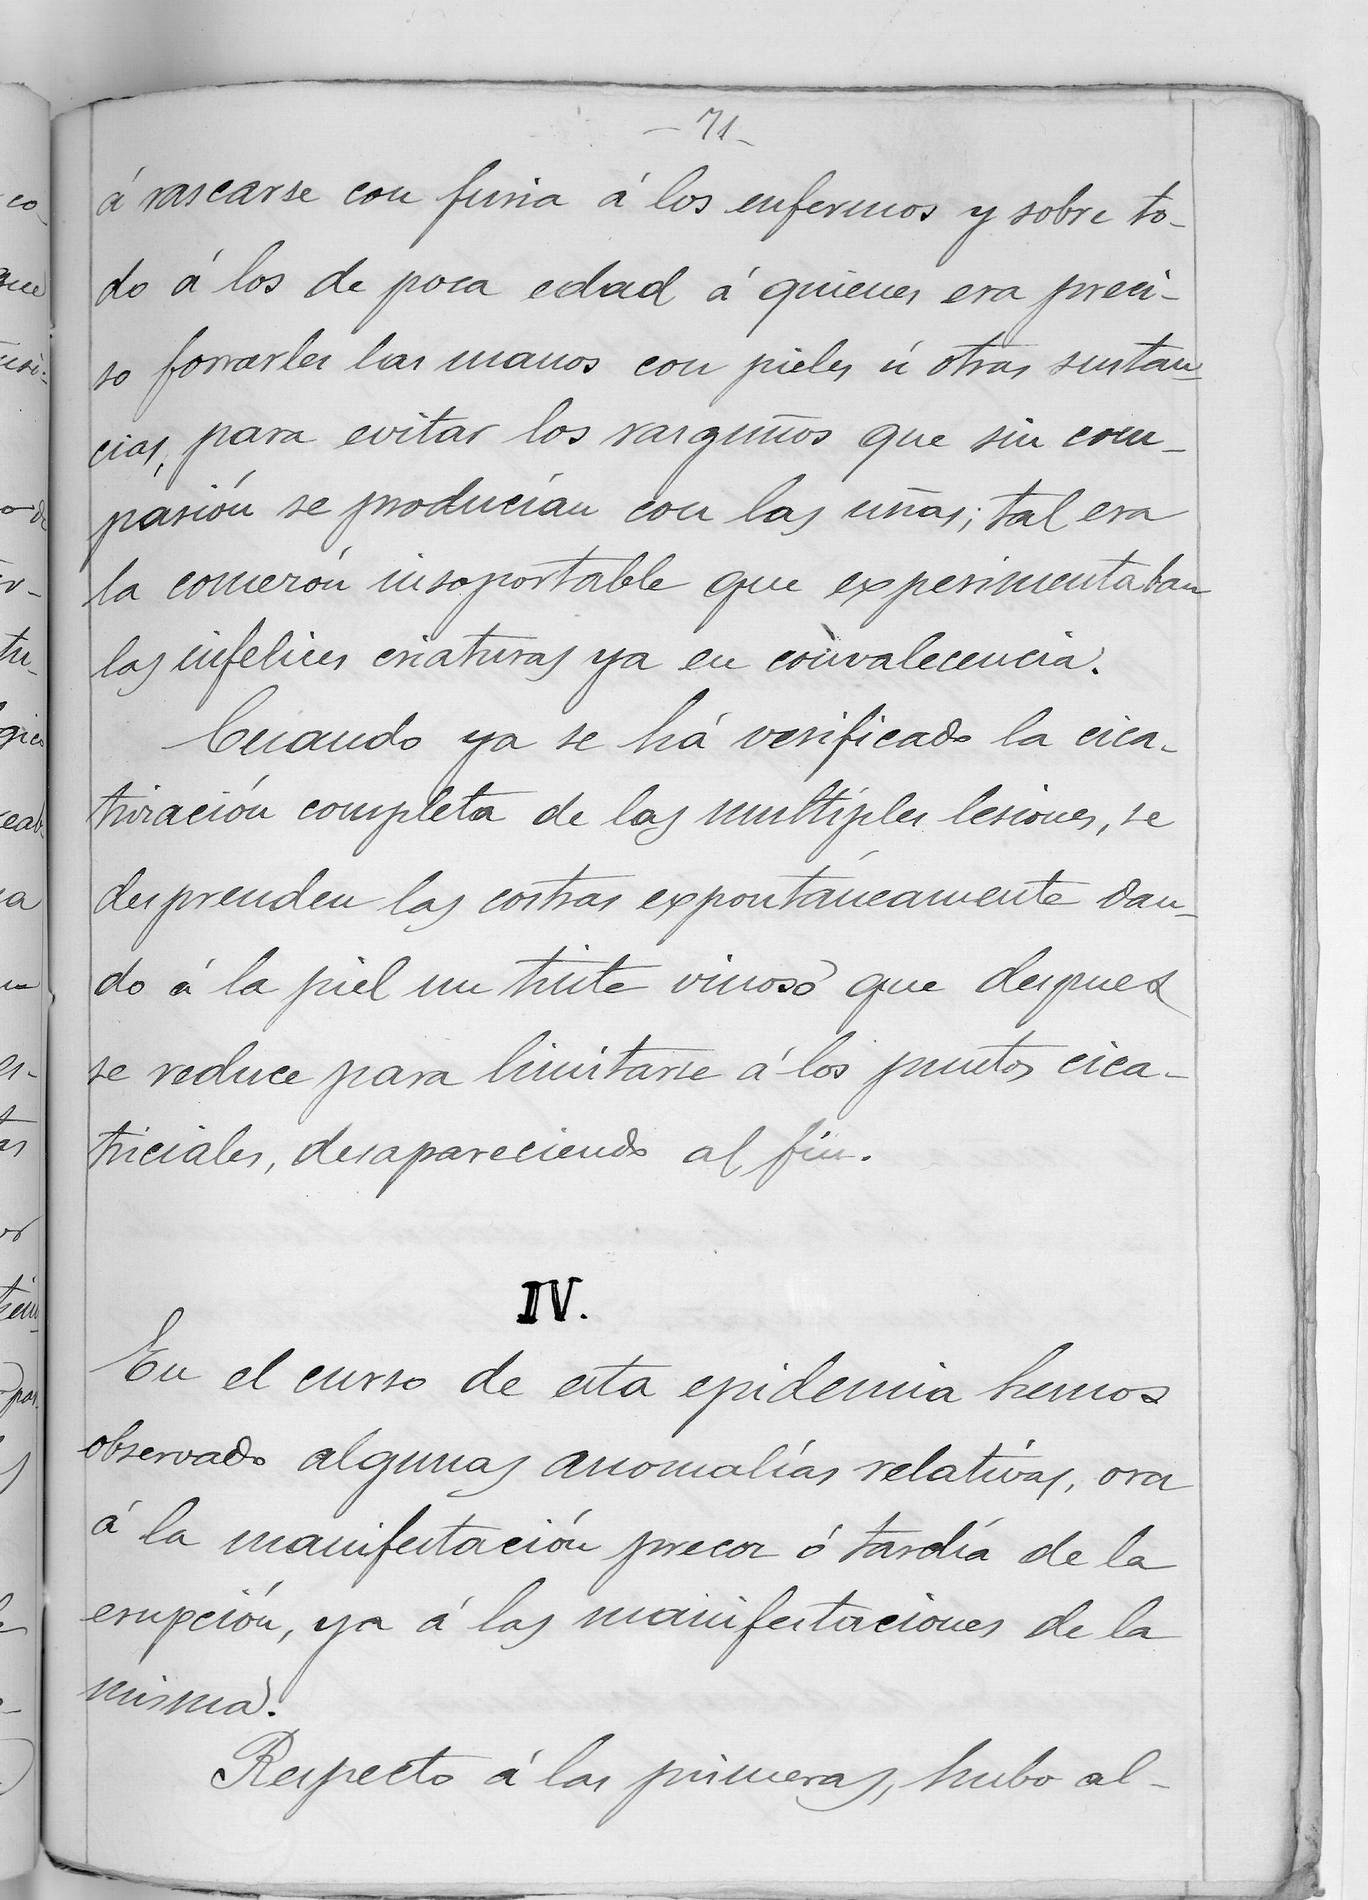 - 71 -
á rascarse con furia á los enfermos y sobre to-
do á los de poca edad á quienes era preci-
so forrarles las manos con pieles ú otras sustan-
cias, para evitar los rasguños que sin com-
pasión se producían con las uñas; tal era
la comezón insoportable que experimentaban
las infelices criaturas ya en convalecencia.
Cuando ya se há verificado la cica-
trización completa de las multíples lesiones, se
desprenden las costras expontáneamente dan-
do á la piel un tinte vinoso que despues
se reduce para limitarse á los puntos cica-
triciales, desapareciendo al fin.
IV.
En el curso de esta epidemia hemos
observado algunas anomalías relativas, ora
á la manifestación precoz ó tardía de la
erupción, ya á las manifestaciones de la
misma.
Respecto á las primeras, hubo al-